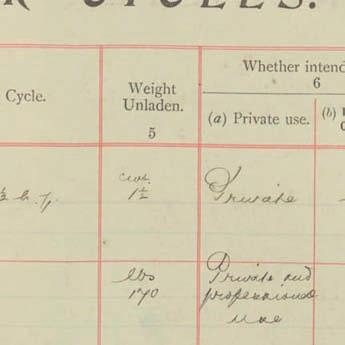 R CYCLES.
Cycle.
Weight
Unladen.
5
Whether intend
6
(a) Private use.
(b)
cwt.
1½
Private
½ h.p.
lbs
170
Private and
professional
use